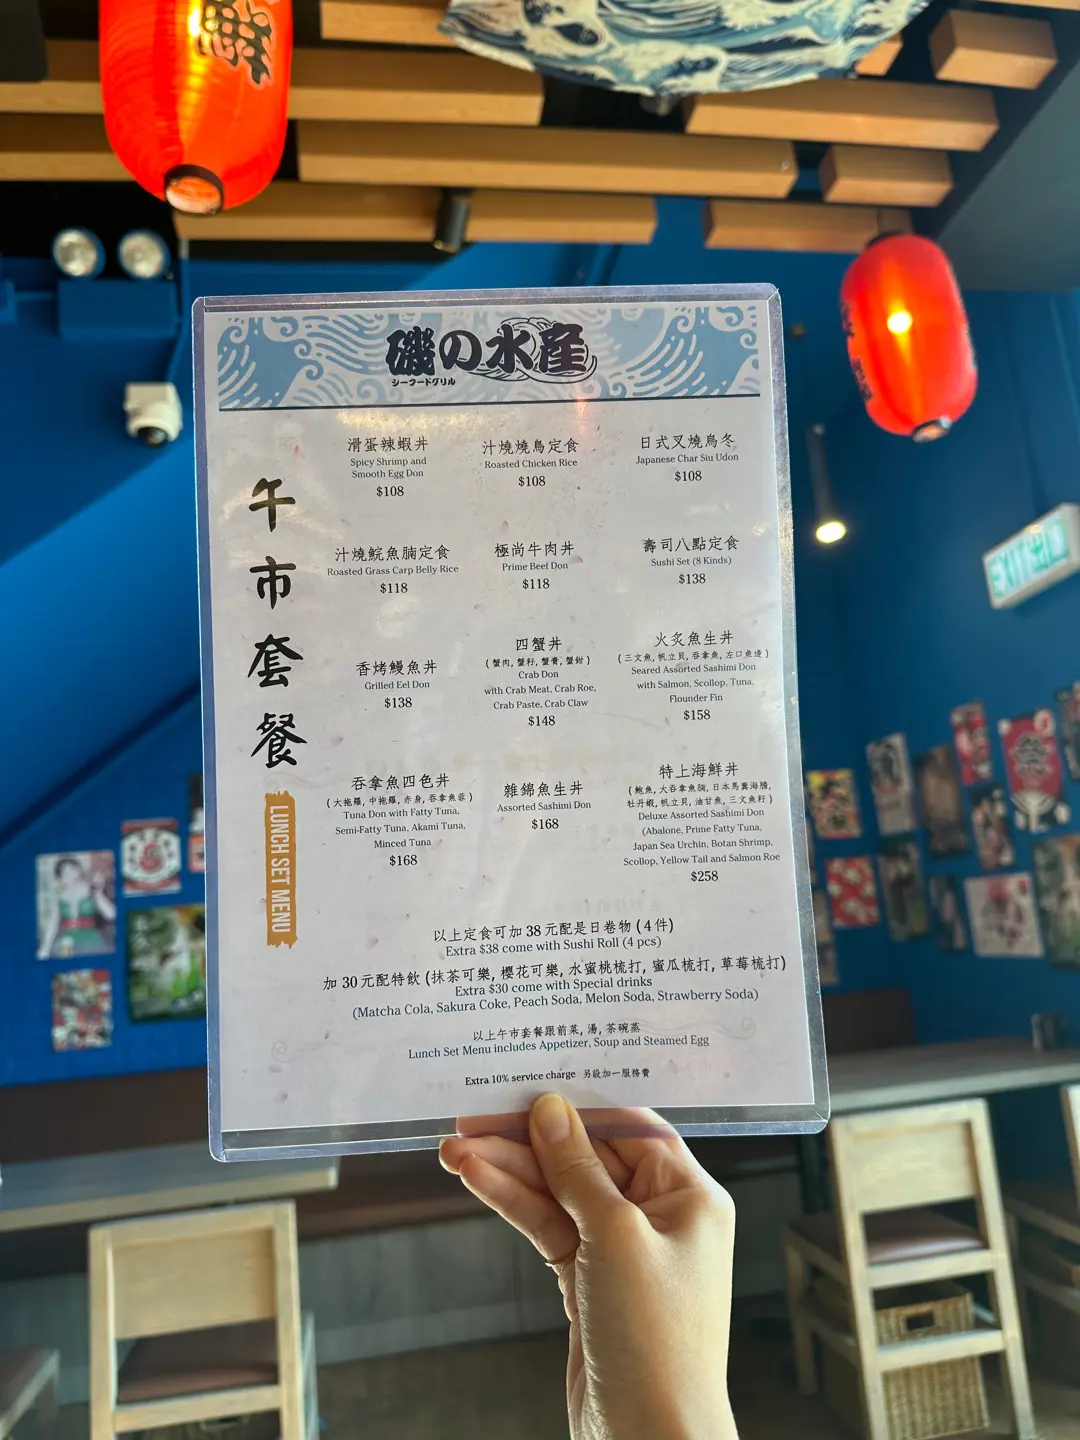 磯の水産
シーフードグリル
午市套餐
LUNCH SET MENU
滑蛋辣蝦丼
Spicy Shrimp and
Smooth Egg Don
$108
汁燒燒鳥定食
Roasted Chicken Rice
$108
日式叉燒烏冬
Japanese Char Siu Udon
$108
汁燒鯇魚腩定食
Roasted Grass Carp Belly Rice
$118
極尚牛肉丼
Prime Beef Don
$118
壽司八點定食
Sushi Set (8 Kinds)
$138
香烤鰻魚丼
Grilled Eel Don
$138
四蟹丼
(蟹肉, 蟹籽, 蟹膏, 蟹鉗)
Crab Don
with Crab Meat, Crab Roe,
Crab Paste, Crab Claw
$148
火炙魚生丼
(三文魚, 帆立貝, 吞拿魚, 左口魚邊)
Seared Assorted Sashimi Don
with Salmon, Scollop, Tuna,
Flounder Fin
$158
吞拿魚四色丼
(大拖羅, 中拖羅, 赤身, 吞拿魚蓉)
Tuna Don with Fatty Tuna,
Semi-Fatty Tuna, Akami Tuna,
Minced Tuna
$168
雜錦魚生丼
Assorted Sashimi Don
$168
特上海鮮丼
(鮑魚, 大吞拿魚腩, 日本馬糞海膽,
牡丹蝦, 帆立貝, 油甘魚, 三文魚籽)
Deluxe Assorted Sashimi Don
(Abalone, Prime Fatty Tuna,
Japan Sea Urchin, Botan Shrimp,
Scollop, Yellow Tail and Salmon Roe
$258
以上定食可加 38 元配是日卷物 (4 件)
Extra $38 come with Sushi Roll (4 pcs)
加 30 元配特飲 (抹茶可樂, 櫻花可樂, 水蜜桃梳打, 蜜瓜梳打, 草莓梳打)
Extra $30 come with Special drinks
(Matcha Cola, Sakura Coke, Peach Soda, Melon Soda, Strawberry Soda)
以上午市套餐跟前菜, 湯, 茶碗蒸
Lunch Set Menu includes Appetizer, Soup and Steamed Egg
Extra 10% service charge 另設加一服務費
EXIT 出口